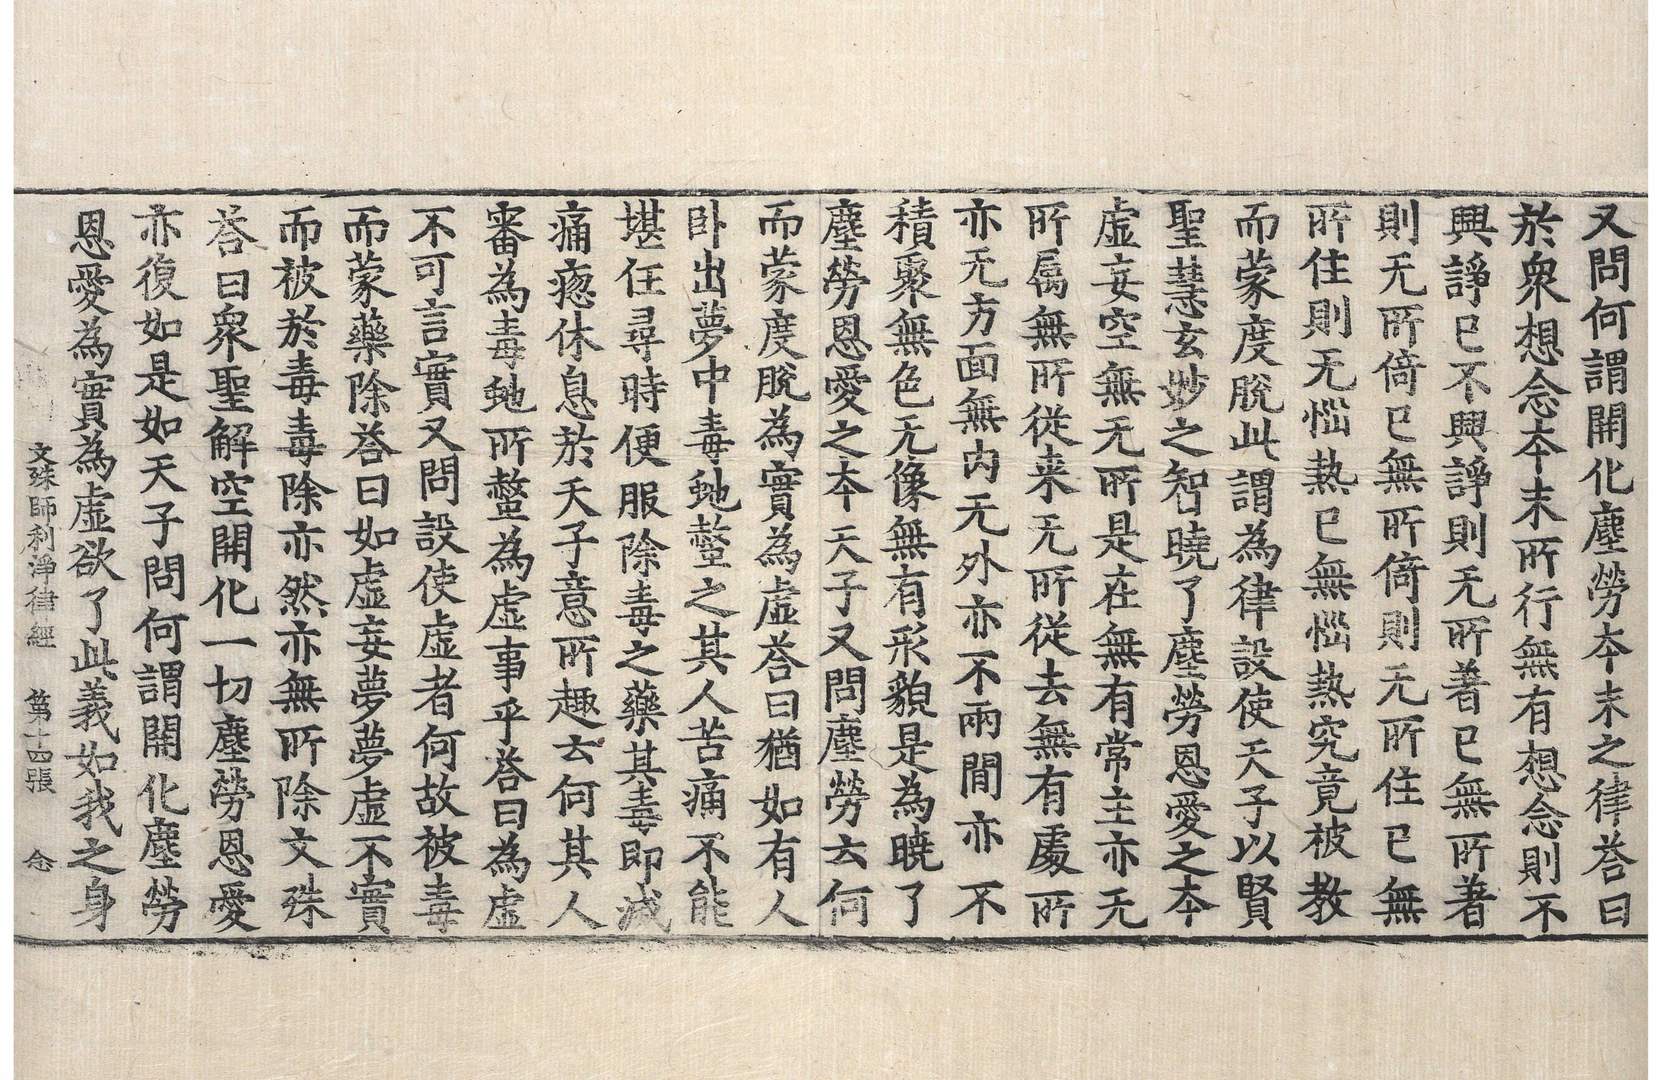 又問何謂開化塵勞本末之律荅曰
於衆想念本末所行無有想念則不
興諍已不興諍則无所著已無所著
則无所倚已無所倚則无所住已無
所住則无惱熱已無惱熱究竟被教
而蒙度脫此謂為律設使天子以賢
聖慧玄妙之智曉了塵勞恩愛之本
虛妄空無无所是在無有常主亦无
所属無所從来无所從去無有處所
亦无方面無內无外亦不兩閒亦不
積聚無色无像無有形貌是為曉了
塵勞恩愛之本天子又問塵勞云何
而蒙度脫為實為虛荅曰猶如有人
卧出夢中毒虵螫之其人苦痛不能
堪任尋時便服除毒之藥其毒即滅
痛瘜休息於天子意所趣云何其人
審為毒虵所螫為虛事乎荅曰為虛
不可言實又問設使虛者何故被毒
而蒙藥除荅曰如虛妄夢夢虛不實
而被於毒毒除亦然亦無所除文殊
荅曰衆聖解空開化一切塵勞恩愛
亦復如是如天子問何謂開化塵勞
恩愛為實為虛欲了此義如我之身
文殊師利淨律經 第十四張 念